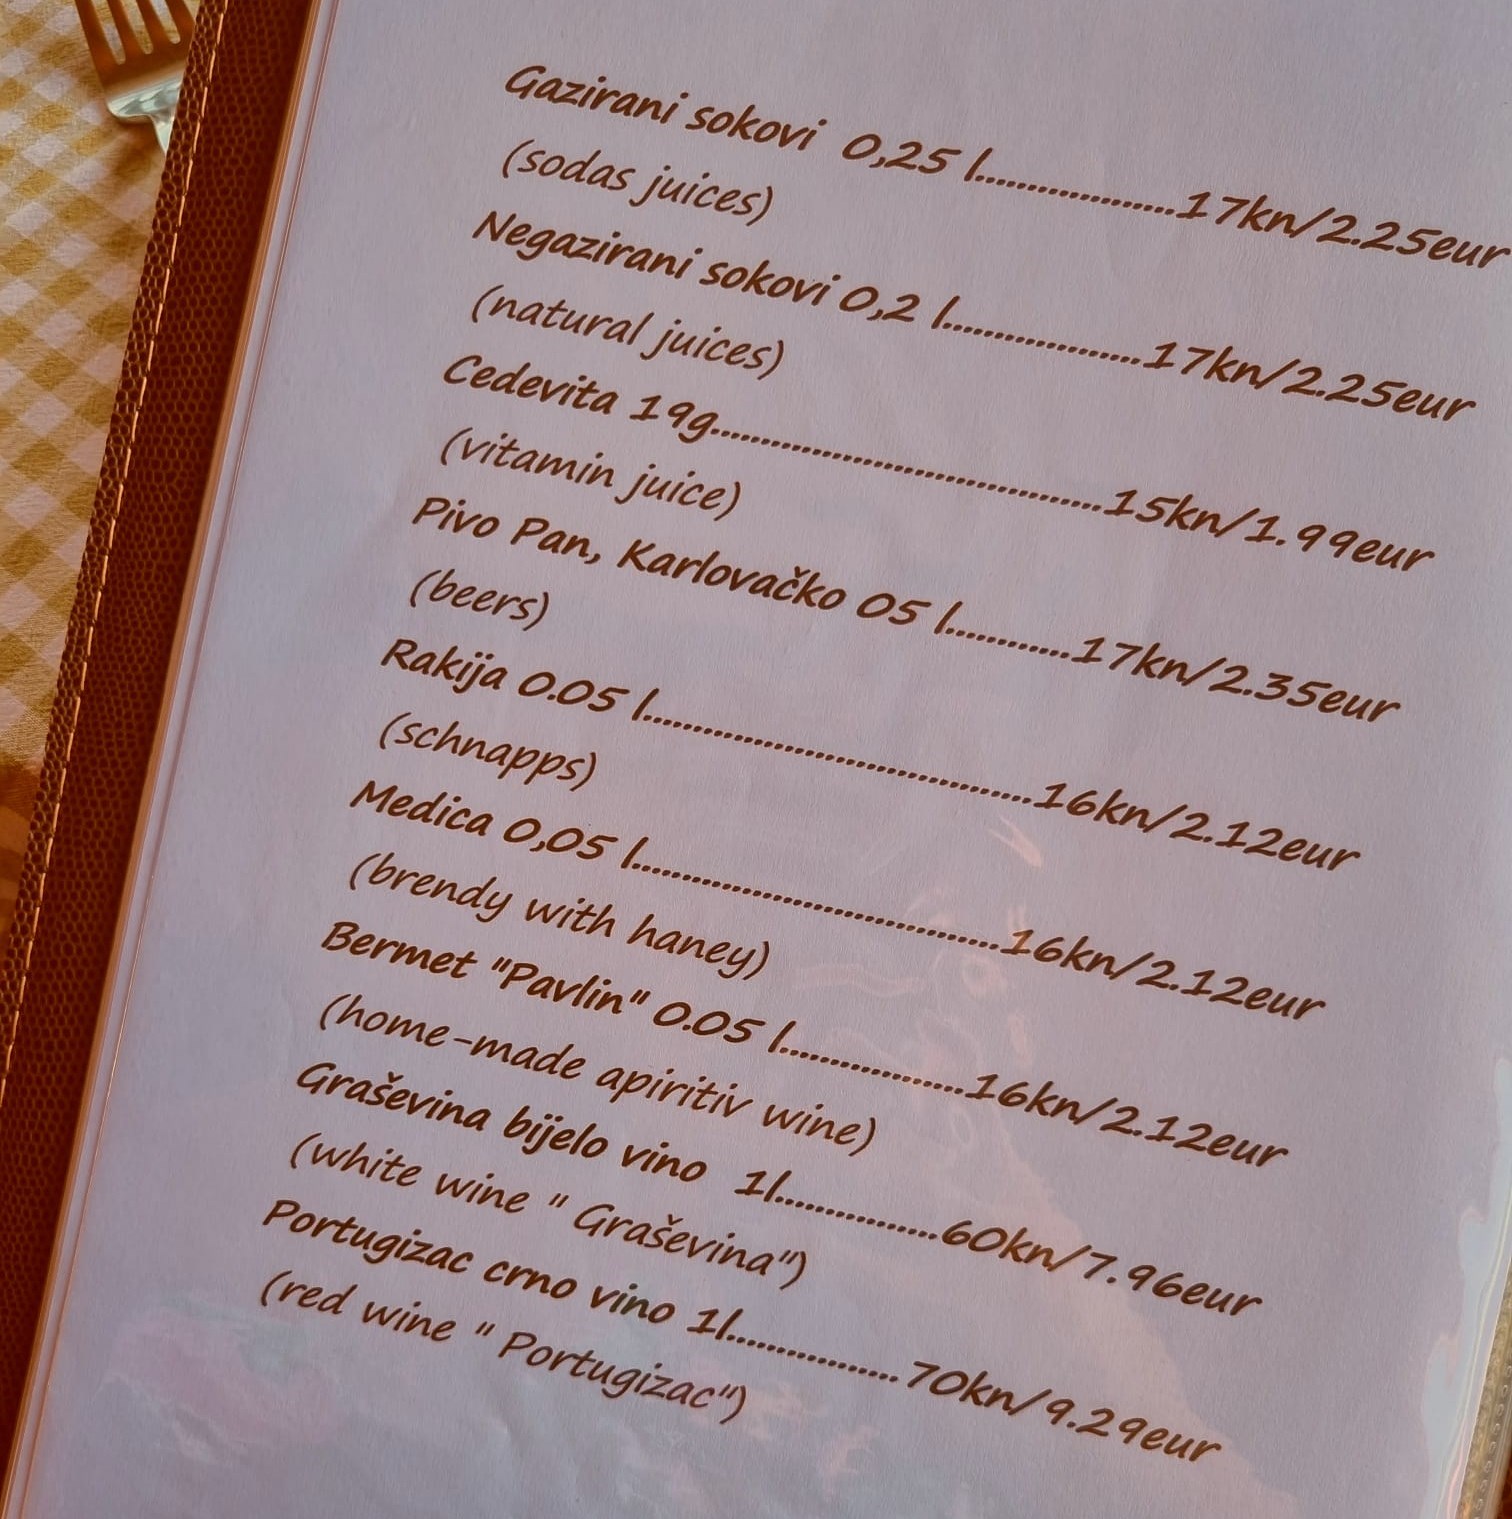 Gazirani sokovi 0,25 l...................17kn/2.25eur
(sodas juices)
Negazirani sokovi 0,2 l...................17kn/2.25eur
(natural juices)
Cedevita 19g......................................15kn/1.99eur
(vitamin juice)
Pivo Pan, Karlovačko 05 l............17kn/2.35eur
(beers)
Rakija 0.05 l......................................16kn/2.12eur
(schnapps)
Medica 0,05 l....................................16kn/2.12eur
(brendy with haney)
Bermet "Pavlin" 0.05 l..................16kn/2.12eur
(home-made apiritiv wine)
Graševina bijelo vino 1l................60kn/7.96eur
(white wine " Graševina")
Portugizac crno vino 1l................70kn/9.29eur
(red wine " Portugizac")